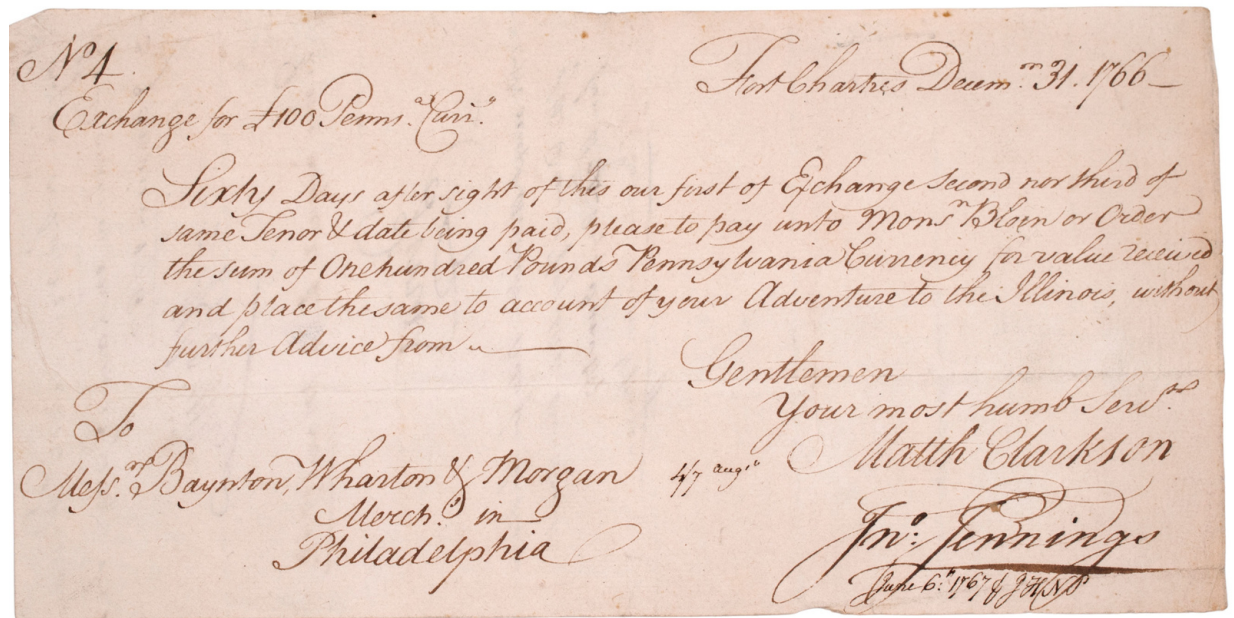 No. 4.
Fort Chartres Decemr. 31. 1766
Exchange for £100 Penns.a Curr.y
Sixty Days after sight of this our first of Exchange second nor third of
same Tenor & date being paid, please to pay unto Monsr. Bloin or Order
the sum of One hundred Pounds Pennsylvania Currency for value received
and place the same to account of your Adventure to the Illinois, without
further Advice from
Gentlemen
Your most humb Serv.ts
To
Matth Clarkson
Mess.rs Baynton, Wharton & Morgan
4/7 aug.
Merch.ts in
Jno. Jennings
Philadelphia
June 6. 1767